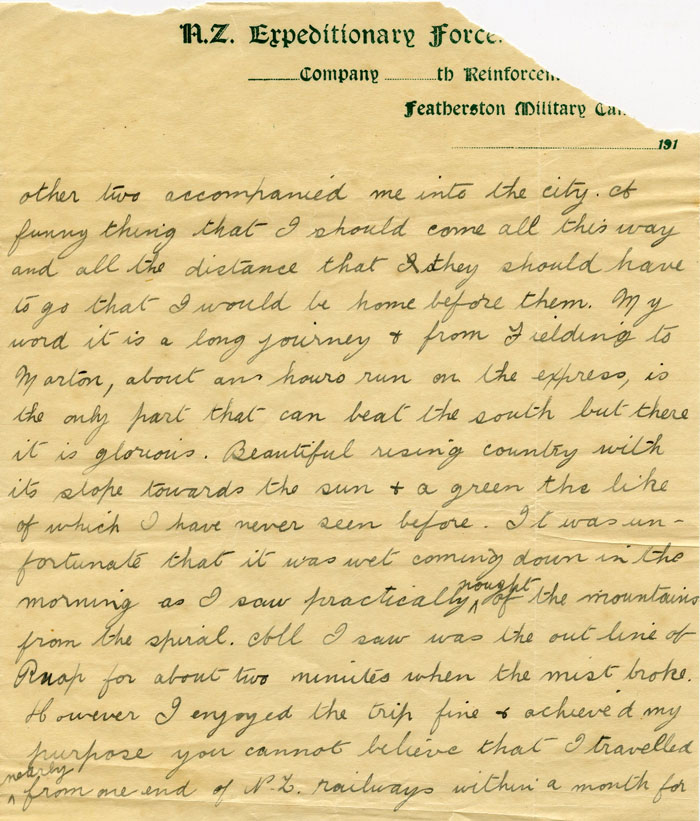 N.Z. Expeditionary Force.
Company th Reinforcem
Featherston Military Ca
191
other two accompanied me into the city. A
funny thing that I should come all this way
and all the distance that they should have
to go that I would be home before them. My
word it is a long journey & from Fielding to
Marton, about an hours run on the express, is
the only part that can beat the south but there
it is glorious. Beautiful rising country with
its slope towards the sun & a green the like
of which I have never seen before. It was un-
fortunate that it was wet coming down in the
morning as I saw practically nought of the mountains
from the spiral. All I saw was the out line of
Ruap for about two minutes when the mist broke.
However I enjoyed the trip fine & achieved my
purpose you cannot believe that I travelled
nearly from one end of N.Z. railways within a month for